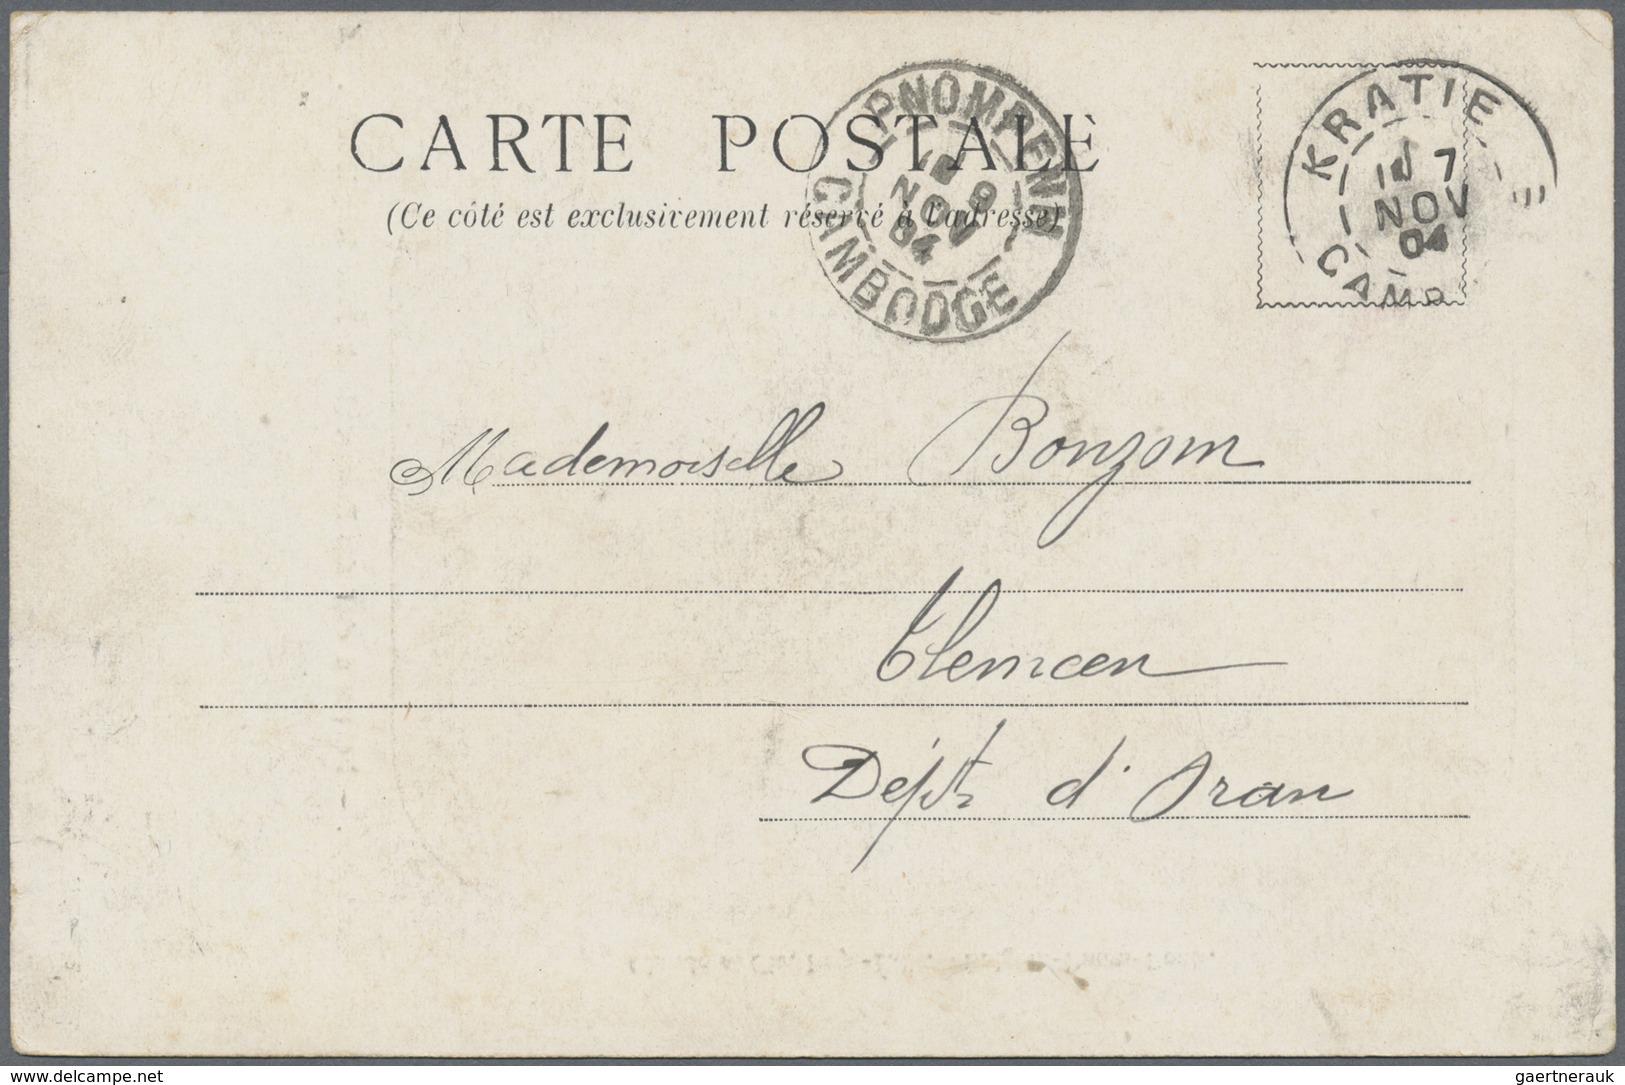 CARTE POSTALE
(Ce côté est exclusivement réservé à l'adresse)
PNOMPENH
9
NOV
04
CAMBODGE
KRATIE
7
NOV
04
CAMB
Mademoiselle Bonzom
Tlemcen
Dépt d'Oran
delcampe.net
gaertnerauk